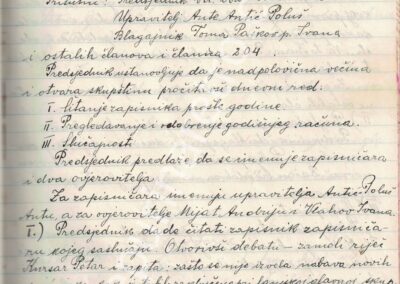 Upravitelj Ante Antić Poluš
Blagajnik Toma Paškov p. Ivana
i ostalih članova i članica 204.
Predsjednik ustanovljuje da je nadpolovična većina
i otvara skupštinu pročita dnevni red.
I. Čitanje zapisnika prošle godine.
II. Pregledavanje i odobrenje godišnjeg računa.
III. Slučajnosti
Predsjednik predlaže da se imenuje zapisničara
i dva ovjerovitelja
Za zapisničara imenuje upravitelja Antić-Poluš
Antu, a za ovjerovitelje Mijat Andriju i Vlahov Ivana
I.) Predsjednik da de čitati zapisnik zapisniča-
ru kojeg saslušaju. Otvorivši debatu - zamoli riječ
Hrvar Petar i zapita: zašto se nije izvela nabava novih